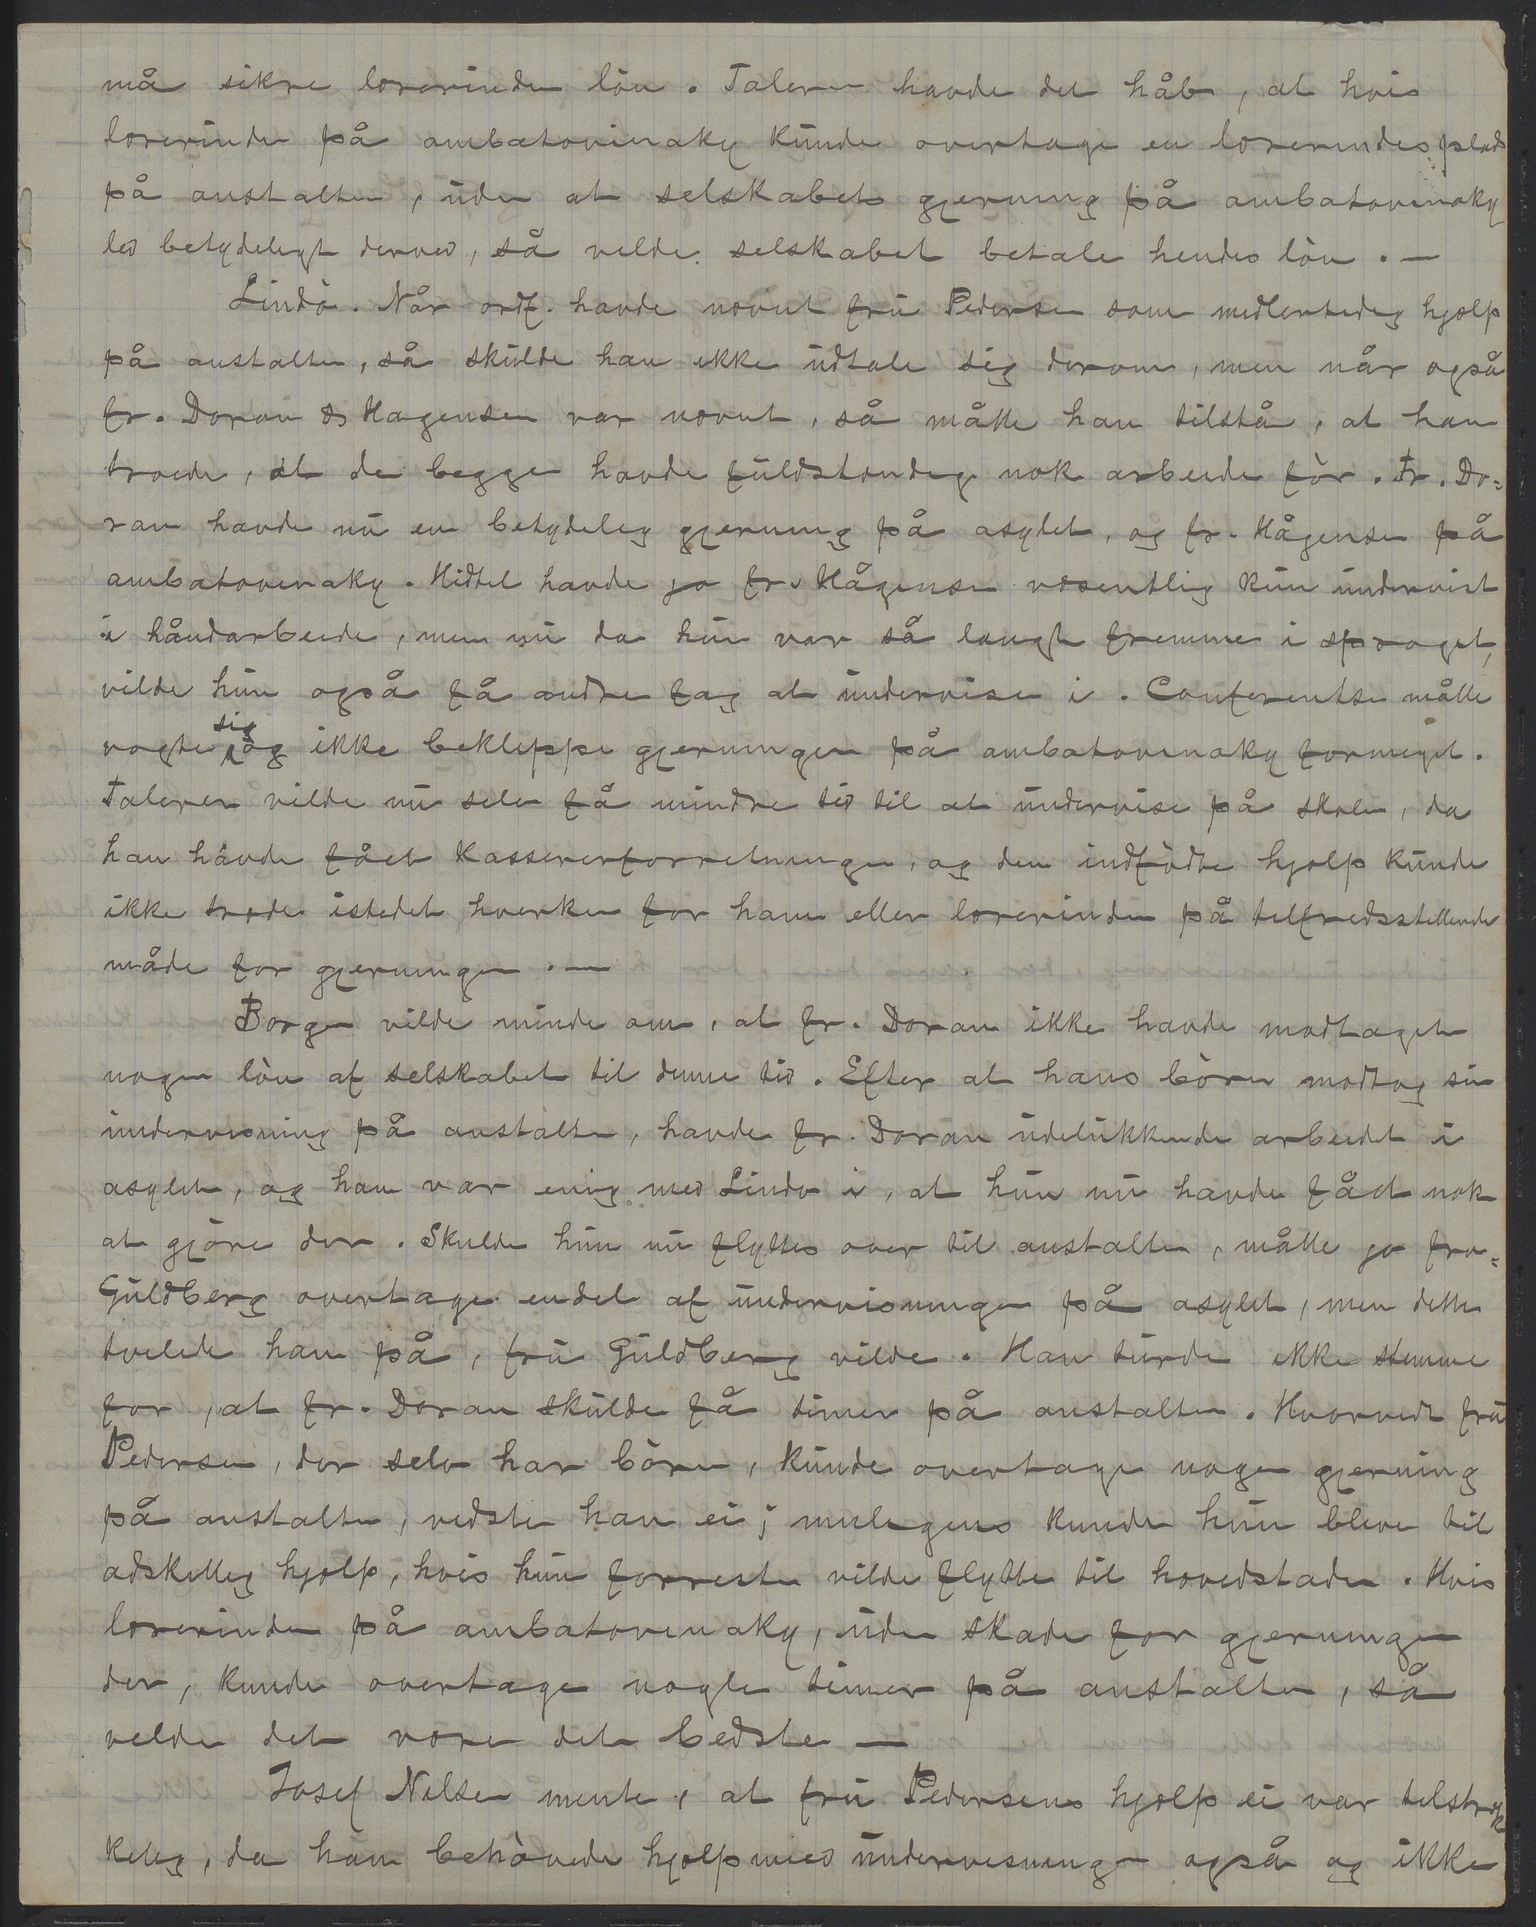 må sikre lærerinden lön. Taleren havde det håb, at hvis
lærerinden på ambatovinaky kunde overtage en lærerindes plads
på anstalten, uden at selskabets gjerning på ambatovinaky
led betydeligt derved, så vilde selskabet betale hendes lön. —
Lindö. Når ordf. havde nævnt fru Pedersen som midlertidig hjælp
på anstalten, så skulde han ikke udtale sig derom, men når også
fr. Doran & Hagensen var nævnt, så måtte han tilstå, at han
troede, at de begge havde fuldstændig nok arbeide för. Fr. Do=
ran havde nu en betydelig gjerning på asylet, og fr. Hågensen på
ambatovinaky. Hidtil havde jo fr. Hågensen væsentlig kun undervist
i håndarbeide, men nu da hun var så langt fremme i sproget,
vilde hun også få andre fag at undervise i. Conferentsen måtte
vogte sig og ikke beklippe gjerningen på ambatovinaky formeget.
Taleren vilde nu selv få mindre tid til at undervise på skolen, da
han havde fået kassererforretningen, og den indfödte hjælp kunde
ikke træde istedet hverken for ham eller lærerinden på tilfredsstillende
måde for gjerningen. —
Borgen vilde minde om, at fr. Doran ikke havde modtaget
nogen lön af selskabet til denne tid. Efter at hans börn modtog sin
undervisning på anstalten, havde fr. Doran udelukkende arbeidet i
asylet, og han var enig med Lindö i, at hun nu havde fået nok
at gjöre der. Skulde hun nu flyttes over til anstalten, måtte jo fru=
Guldberg overtage endel af undervisningen på asylet, men dette
tvilede han på, fru Guldberg vilde. Han turde ikke stemme
for, at fr. Doran skulde få timer på anstalten. Hvorvidt fru
Pedersen, der selv har börn, kunde overtage nogen gjerning
på anstalten, vidste han ei; muligens kunde hun blive til
adskillig hjælp, hvis hun forresten vilde flytte til hovedstaden. Hvis
lærerinden på ambatovinaky, uden skade for gjerningen
der, kunde overtage nogle timer på anstalten, så
vilde det være det bedste —
Josef Nilsen mente, at fru Pedersens hjælp ei var tilstræk
kelig, da han behövede hjælp med undervisningen også og ikke